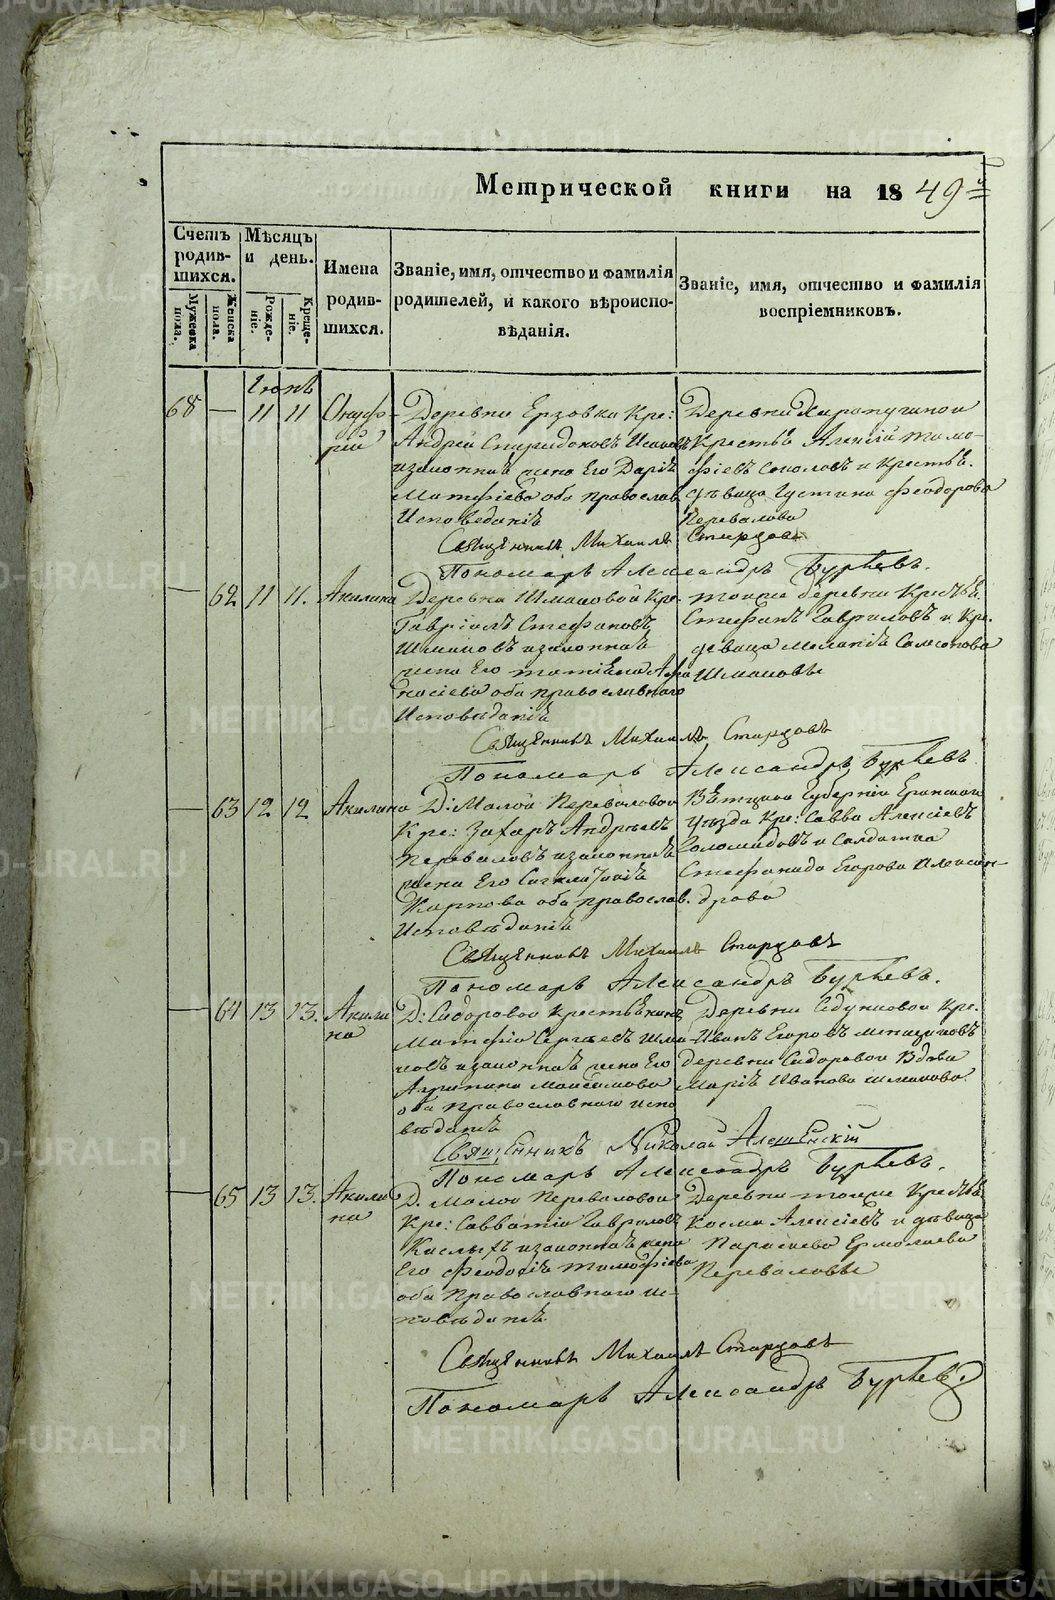 Метрической книги на 1849й
Счетъ родившихся.
Мужеска пола.
Женска пола.
Мѣсяцъ и день.
Рожденіе.
Крещеніе.
Имена родившихся.
Званіе, имя, отчество и фамилія родителей, и какого вѣроисповѣданія.
Званіе, имя, отчество и фамилія воспріемниковъ.
Іюнь
68 — 11 11 Онуфрій
Деревни Ерзовки Кре:
Андрей Спиридоновъ
изаконная жена Его Дарія
Матфіева оба православ.
Исповеданія
Деревни
Крестья. Алексій Тимо-
фіевъ Соколовъ и Крестья.
дѣвица Густина Феодорова
Перевалова
Священникъ Михаилъ Старцовъ
Пономарь Александръ Бурѣевъ.
— 62 11 11. Акилина
Деревни Шмаковой Кре.
Гавріилъ Стефановъ
Шмаковъ изаконная
жена Его Татіана Афа
насіева оба православнаго
Исповѣданія
тойже деревни Кресть.
Стефанъ Гавриловъ и Кре.
девица Меланія Самсонова
Шмаковы
Священникъ Михаилъ Старцовъ
Пономарь Александръ Бурѣевъ
— 63 12 12 Акилина
Д: Малой Переваловой
Кре: Захаръ Андрѣевъ
Переваловъ изаконная
жена Его
Карпова оба православ.
Исповѣданія
Вѣтской Губерніи
уѣзда Кре: Савва Алексіевъ
и солдатка
Стефанида Егорова Алексан-
дрова
Священникъ Михаилъ Старцовъ
Пономарь Александръ Бурѣевъ.
— 64 13 13. Акилина
Д: Сидоровой Крестьянинъ
Матфій Сергѣевъ Шма
ковъ изаконная жена Его
Агрипина Максимова
оба Православнаго испо
вѣданія
Деревни Кре.
Иванъ Егоровъ
деревни Сидоровой Вдова
Марія Иванова Шмакова
Священникъ Николай
Пономарь Александръ Бурѣевъ.
— 65 13 13. Акилина
Д. Малой Переваловой
Кре: Савватій Гавриловъ
Кислыхъ изаконная жена
Его Феодосія Тимофіева
оба Православнаго Ис-
повѣданія
Деревни тойже Кресть
Косма Алексіевъ и дѣвица
Параскева Ермолаева
Переваловы
Священникъ Михаилъ Старцовъ
Пономарь Александръ Бурѣевъ.
METRIKI.GASO-URAL.RU